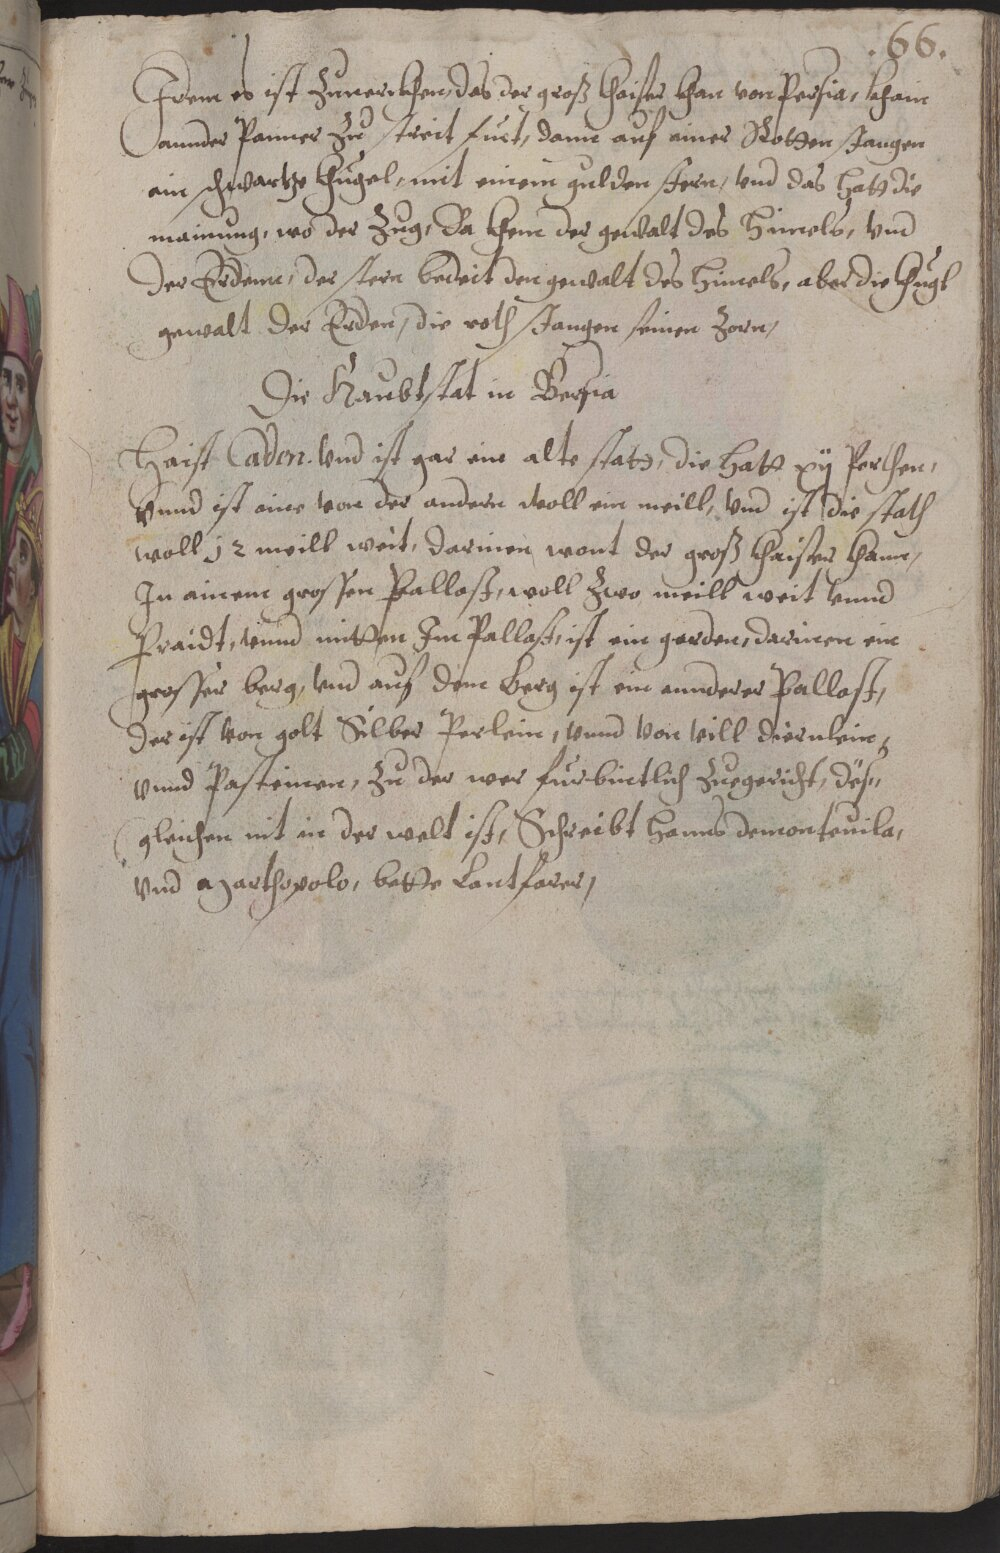 .66.
Item es ist Zunerckhen, das der groß khaiser khan von Persia, khain
annder Panner Zu streit fuert, dann auf ainer Rotten stangen
ein schwartze khugel, mit einem gulden stern, vnd das hatt die
mainung, wo der Zug, Da khem der gewalt des Himels, vnd
der Erdenn, der stern bedeit den gewalt des himels, aber die khugl
gewalt der Erden, die roth stangen seinen Zorn,
Die Haubtstat in Persia
Haist Cadon. Vnd ist gar ein alte statt, die hatt xij Perkhen,
Vnnd ist aine von der andern woll ein meill, vnd ist die stath
woll 12 meill weit, darinen wont der groß khaiser khann,
In ainem grossen Pallast, woll Zwo meill weit vnnd
Praidt, vnnd mitten Im Pallast, ist ein garden, darinen ein
grosser berg, vnd auf dem berg ist ein annderer Pallast,
der ist von golt Silber Perlein, vnnd von vill diernlein,
vnnd Pasteinen, Zu der wer furbintlich Zuegericht, deß,,
gleichen nit in der welt ist, Schreibt Hanns demonteuila,
Vnd Marthopolo, bette Lantfarer,